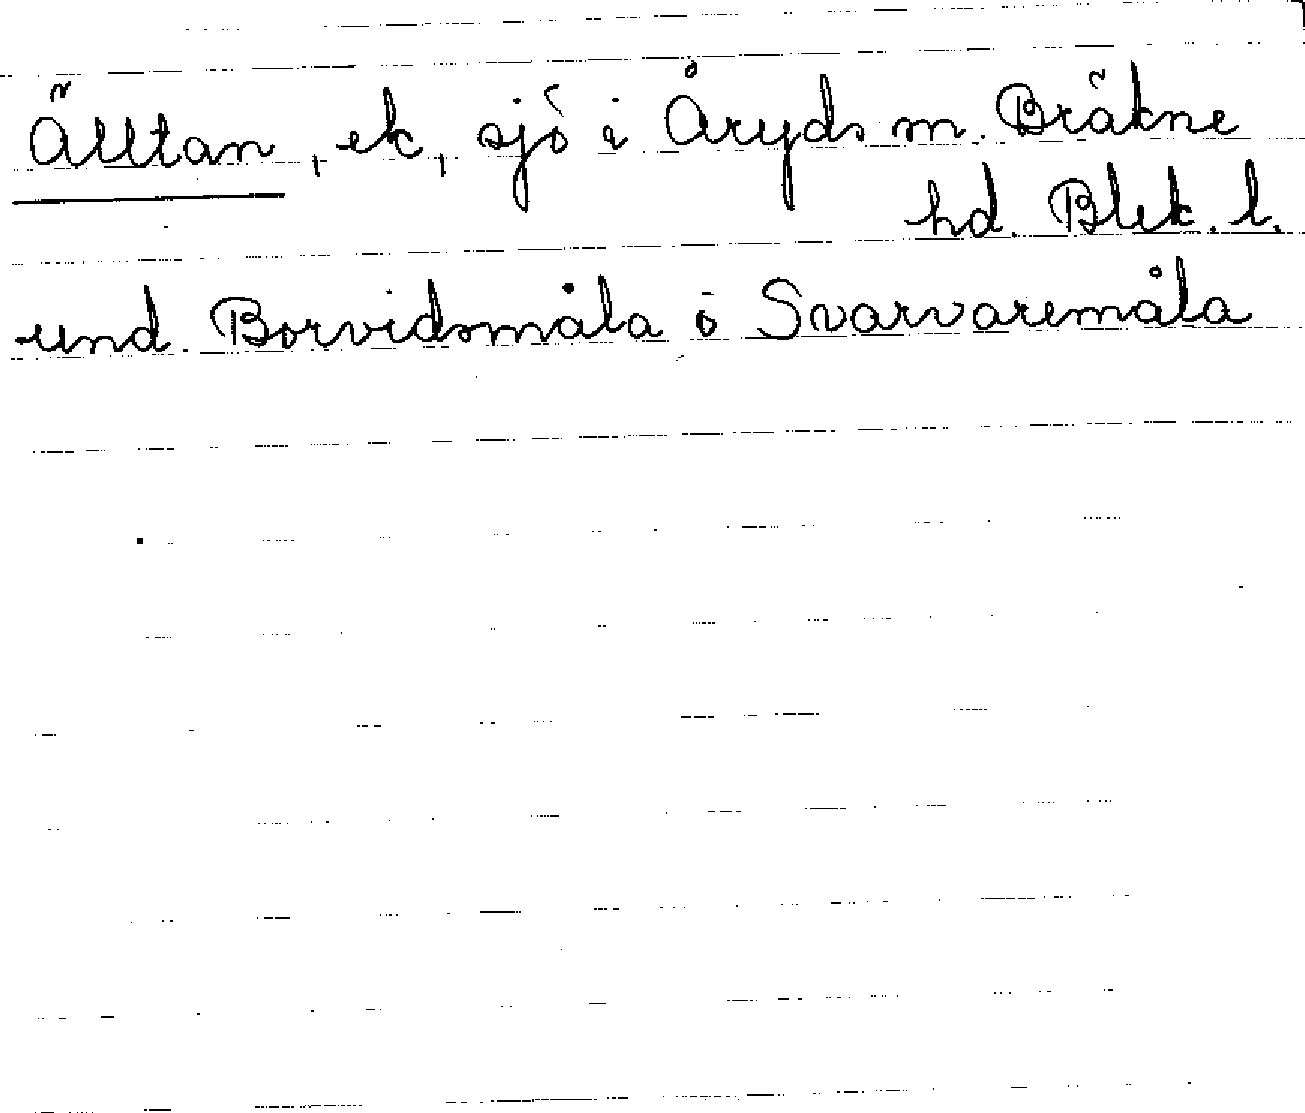 Älltan, ek, sjö i Åryds m. Bräkne
hd. Blek. l.
und. Borvidsmåla o Svarvaremåla